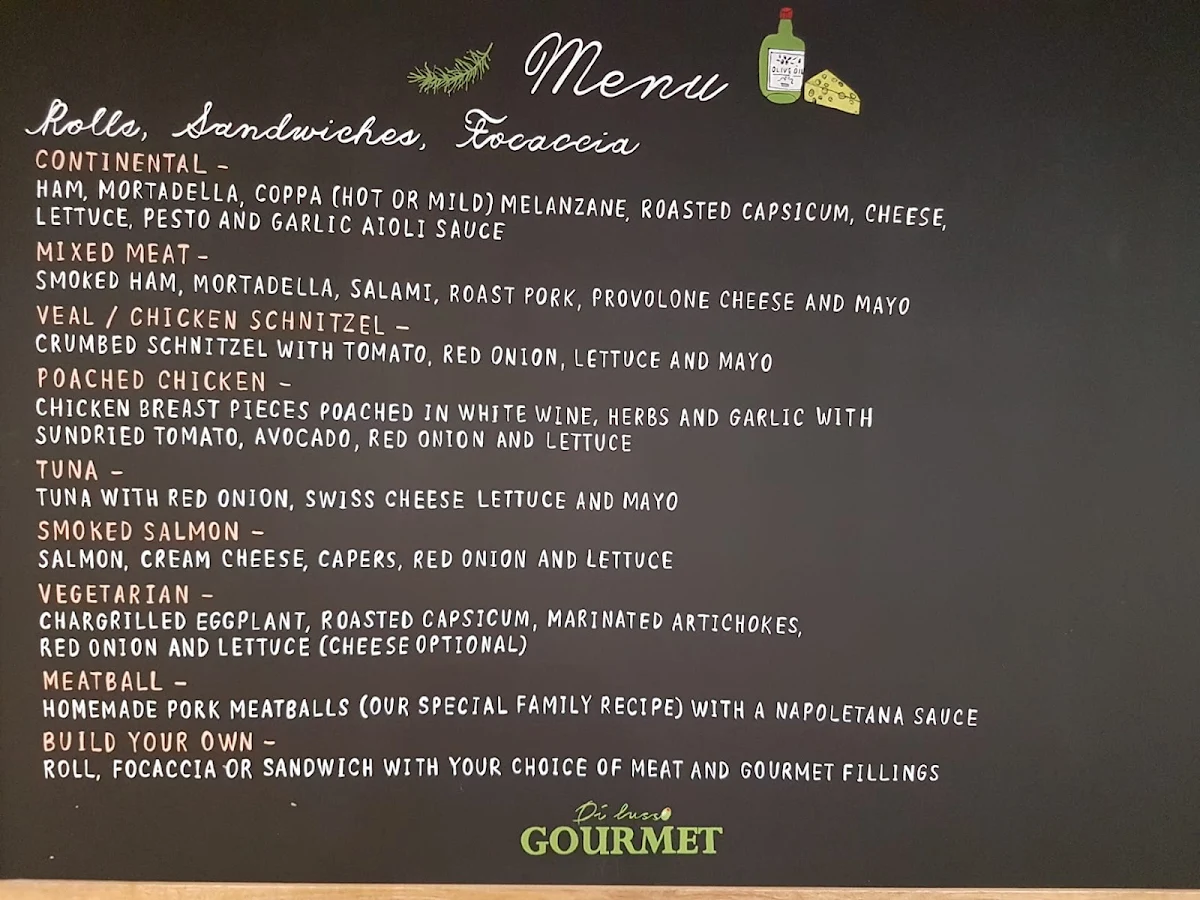 Menu
OLIVE OIL
Rolls, Sandwiches, Focaccia
CONTINENTAL -
HAM, MORTADELLA, COPPA (HOT OR MILD) MELANZANE, ROASTED CAPSICUM, CHEESE,
LETTUCE, PESTO AND GARLIC AIOLI SAUCE
MIXED MEAT -
SMOKED HAM, MORTADELLA, SALAMI, ROAST PORK, PROVOLONE CHEESE AND MAYO
VEAL / CHICKEN SCHNITZEL -
CRUMBED SCHNITZEL WITH TOMATO, RED ONION, LETTUCE AND MAYO
POACHED CHICKEN -
CHICKEN BREAST PIECES POACHED IN WHITE WINE, HERBS AND GARLIC WITH
SUNDRIED TOMATO, AVOCADO, RED ONION AND LETTUCE
TUNA -
TUNA WITH RED ONION, SWISS CHEESE LETTUCE AND MAYO
SMOKED SALMON -
SALMON, CREAM CHEESE, CAPERS, RED ONION AND LETTUCE
VEGETARIAN -
CHARGRILLED EGGPLANT, ROASTED CAPSICUM, MARINATED ARTICHOKES,
RED ONION AND LETTUCE (CHEESE OPTIONAL)
MEATBALL -
HOMEMADE PORK MEATBALLS (OUR SPECIAL FAMILY RECIPE) WITH A NAPOLETANA SAUCE
BUILD YOUR OWN -
ROLL, FOCACCIA OR SANDWICH WITH YOUR CHOICE OF MEAT AND GOURMET FILLINGS
Di lusso
GOURMET